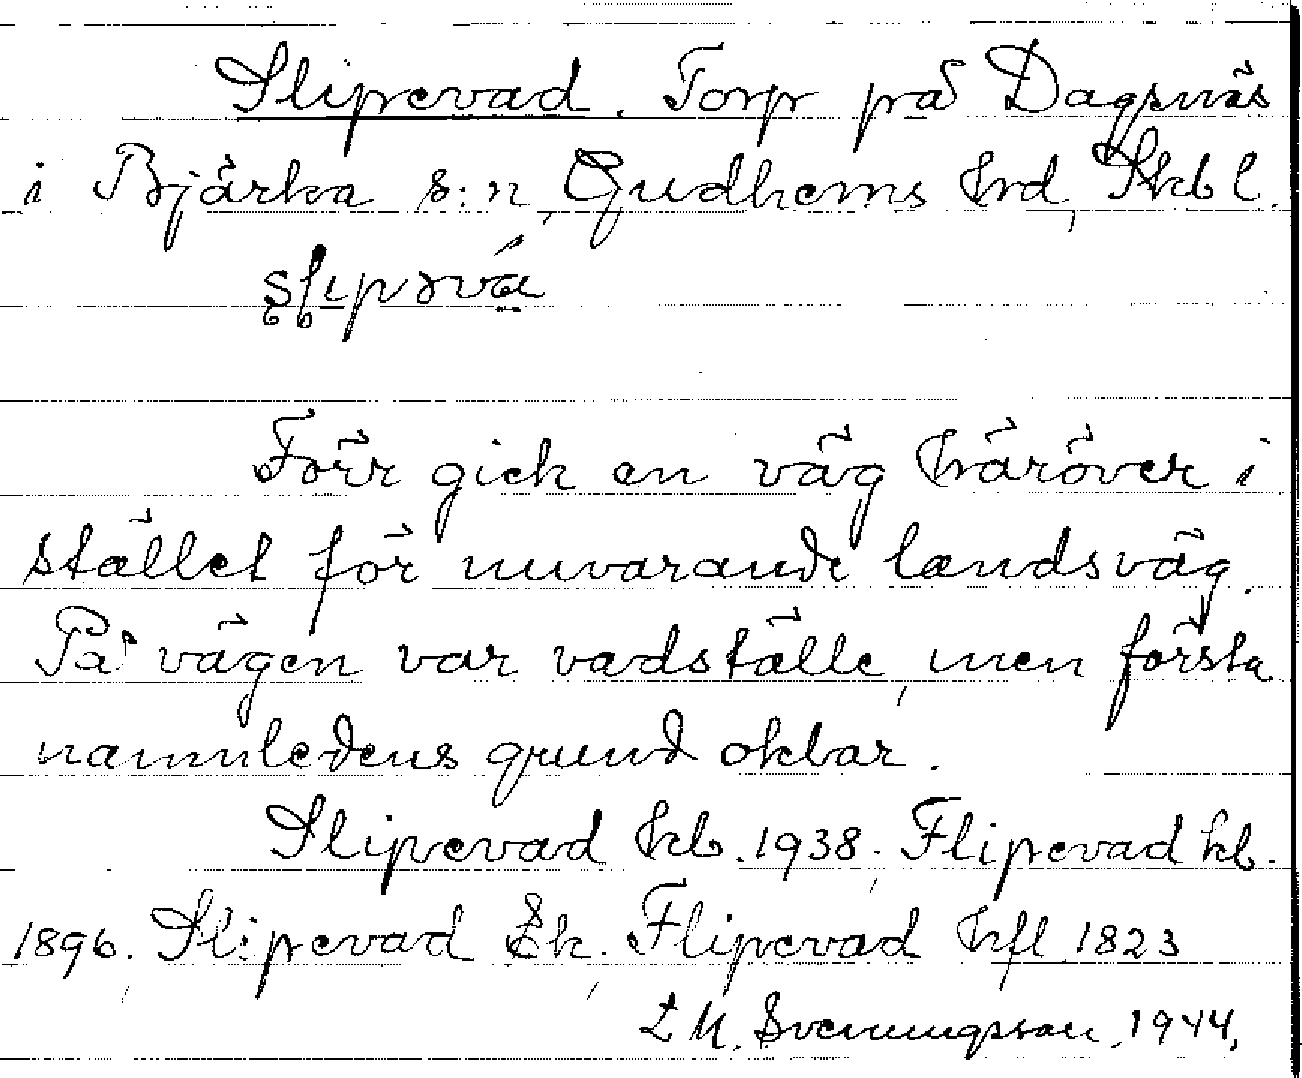 Slipevad. Torp på Dagsnäs
i Bjärka s:n, Gudhems hrd, Skbl.
Förr gick en väg häröver i
stället för nuvarande landsväg.
På vägen var vadställe, men första
namnledens grund okbar.
Slipevad kb. 1938; Flipevad hb.
1896; Slipevad Ek; Flipevad hfl 1823
L M. Svenungsson, 1944,